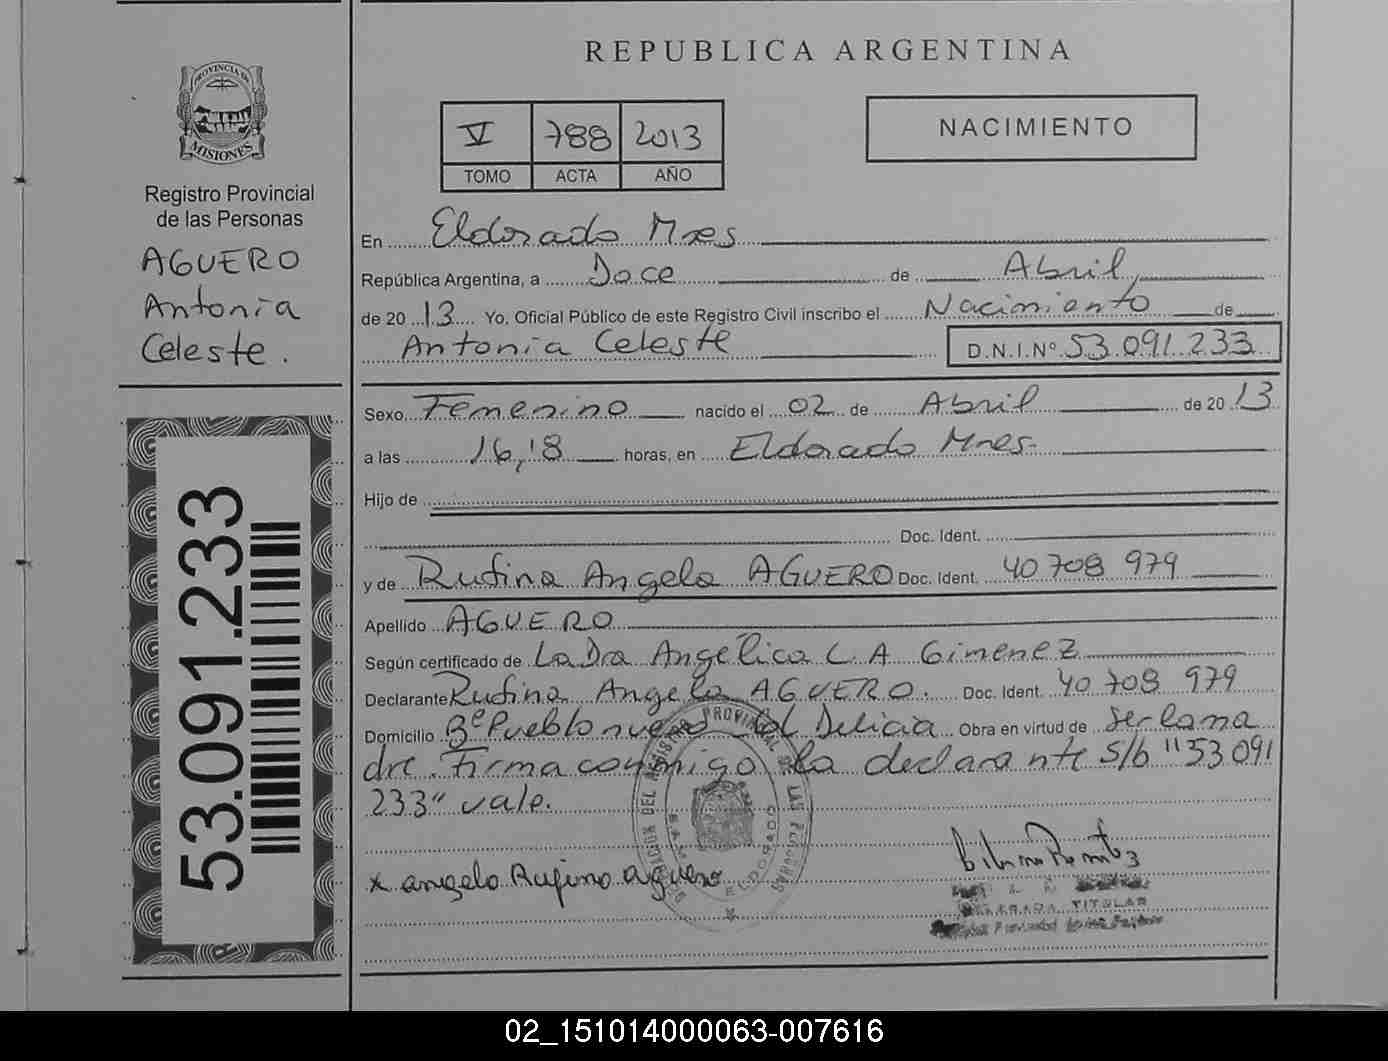 REPUBLICA ARGENTINA
PROVINCIA DE
MISIONES
Registro Provincial
de las Personas
AGUERO
Antonia
Celeste.
53.091.233
V 788 2013
TOMO ACTA AÑO
NACIMIENTO
En Eldorado Mnes
República Argentina, a Doce de Abril,
de 20 13 Yo, Oficial Público de este Registro Civil inscribo el Nacimiento de
Antonia Celeste D.N.I.Nº 53.091.233
Sexo Femenino nacido el 02 de Abril de 20 13
a las 16,18 horas, en Eldorado Mnes.
Hijo de
Doc. Ident.
y de Rufina Angela AGUERO Doc. Ident. 40 708 979
Apellido AGUERO
Según certificado de La Dra Angélica L. A. Gimenez
Declarante Rufina Angela AGUERO. Doc. Ident. 40 708 979
Domicilio Bº Pueblo nuevo Col Delicia Obra en virtud de Ser la ma
dre. Firma conmigo la declarante s/b "53 091
233" vale.
x angela Rufina aguero
DEL REGISTRO PROVINCIAL DE LAS PERSONAS
ELDORADO
TITULAR
02_151014000063-007616